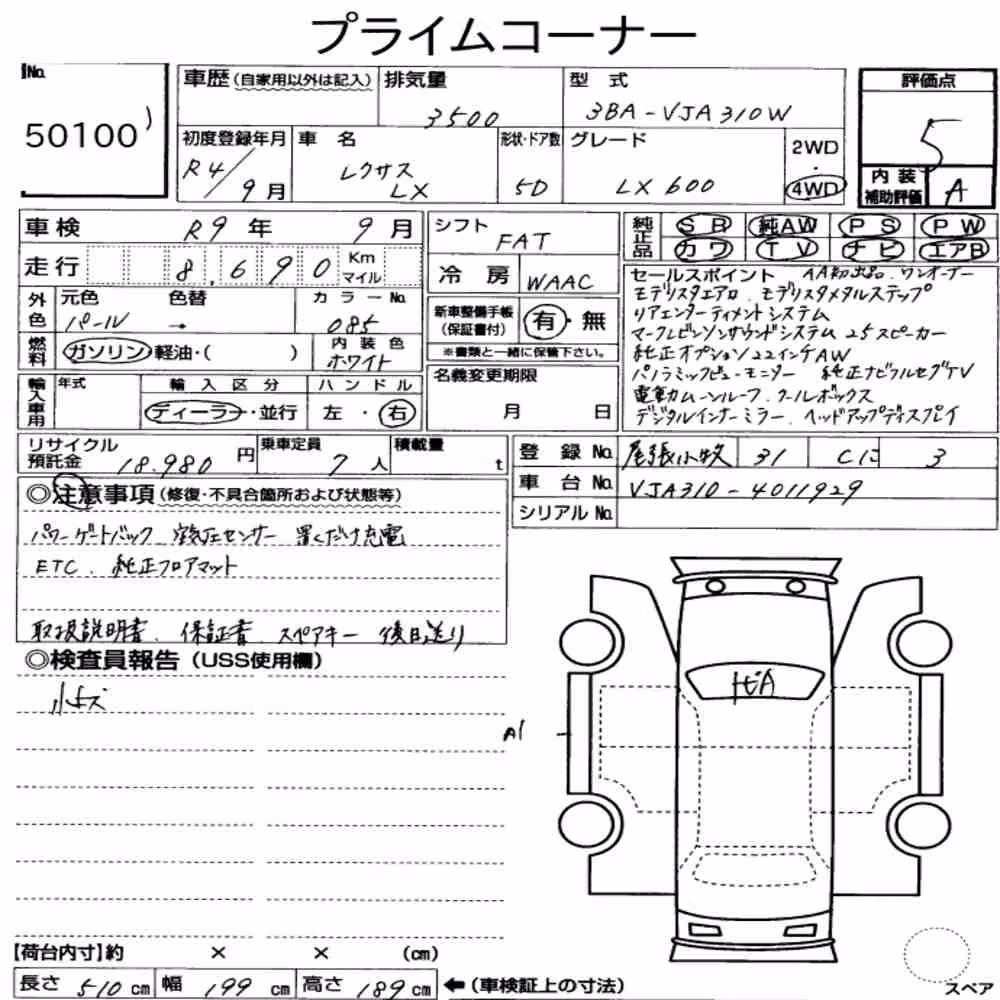 プライムコーナー
No.
50100
車歴(自家用以外は記入)
排気量
3500
型式
3BA-VJA310W
評価点
5
初度登録年月
R4/9月
車名
レクサス
LX
形状・ドア数
5D
グレード
LX600
2WD
・
4WD
内装
補助評価
A
車検
R9年 9月
走行
8,690 Km
マイル
外色
元色
パール
色替
→
カラーNo.
085
燃料
ガソリン・軽油・( )
内装色
ホワイト
輸入車用
年式
輸入区分
ディーラー・並行
ハンドル
左・右
シフト
FAT
冷房
WAAC
新車整備手帳
(保証書付)
有・無
※書類と一緒に保管下さい。
名義変更期限
月 日
純正品
SR 純AW PS PW
カワ TV ナビ エアB
セールスポイント AA初出品、ワンオーナー
モデリスタエアロ、モデリスタメタルステップ
リアエンターティメントシステム
マークレビンソンサウンドシステム 25スピーカー
純正オプション22インチAW
パノラミックビューモニター 純正ナビフルセグTV
電動ムーンルーフ、クールボックス
デジタルインナーミラー、ヘッドアップディスプレイ
リサイクル
預託金
18,980円
乗車定員
7人
積載量
t
登録No.
尾張小牧 31 Cに 3
車台No.
VJA310-4011929
シリアルNo.
◎注意事項(修復・不具合箇所および状態等)
パワーゲートバック 空気圧センサー 置くだけ充電
ETC、純正フロアマット
取扱説明書、保証書、スペアキー 後日送り
◎検査員報告(USS使用欄)
小キズ
A1
【荷台内寸】約 × × (cm)
長さ 510 cm 幅 199 cm 高さ 189 cm ←(車検証上の寸法)
スペア